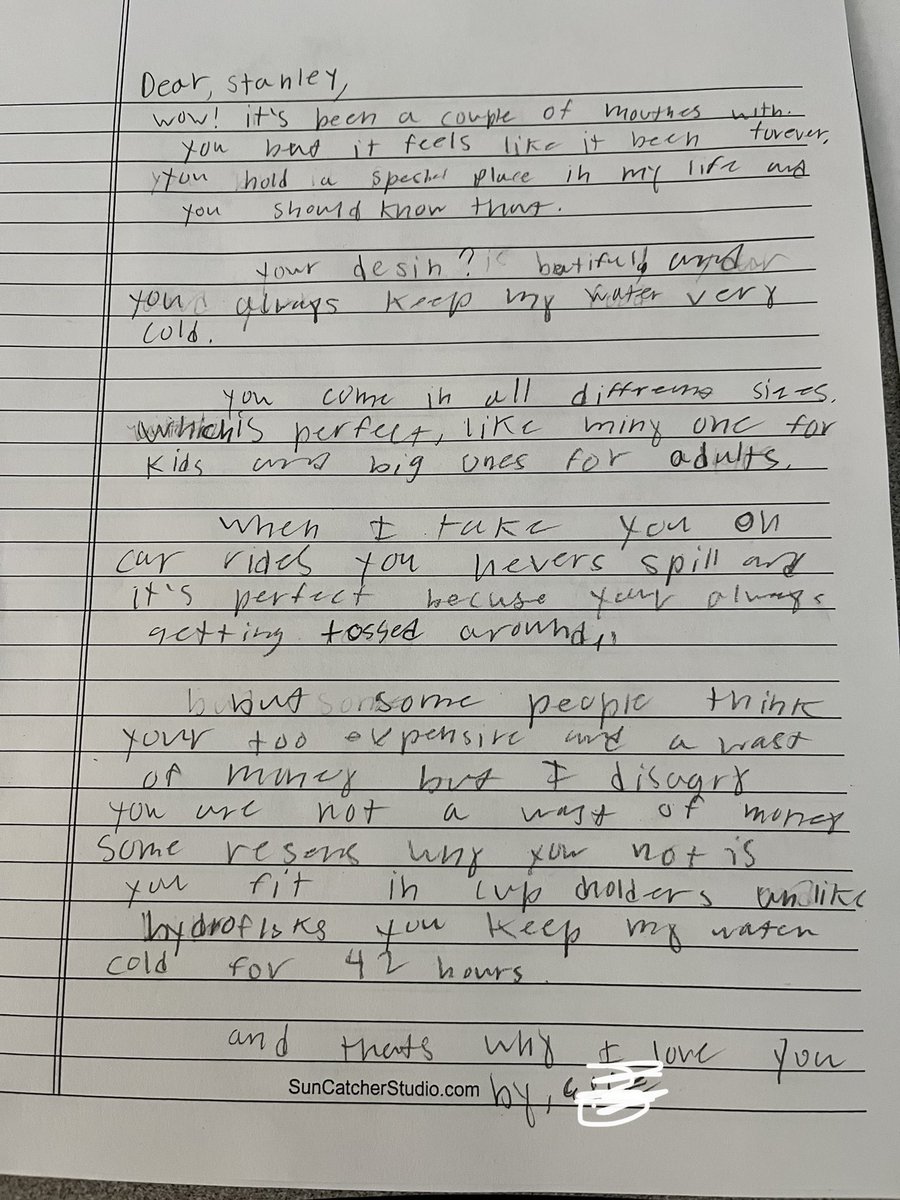 Dear, Stanley,
wow! it's been a couple of mouthes with
you but it feels like it been furever,
you hold a spechel place in my life and
you should know that.
your desin? is batifull, and
you always keep my water very
cold.
you come in all diffrens sizes.
which is perfect, like miny one for
kids and big ones for adults.
when I take you on
car rides you nevers spill and
it's perfect becuse your always
getting tossed around,,
but some people think
your too expensive and a wast
of money but I disagry
you are not a wast of money
Some resens why your not is
you fit in cup holders unlike
hydroflsks you keep my water
cold for 42 hours.
and thats why I love you
SunCatcherStudio.com
by,